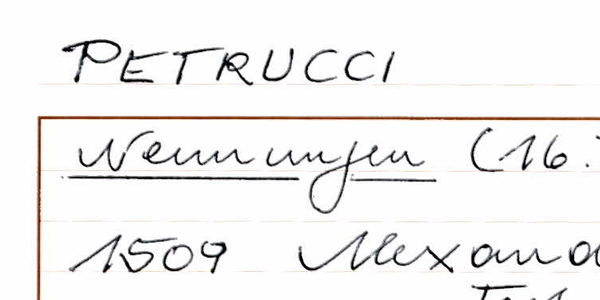 PETRUCCI
Nennungen (16.
1509 Alexand